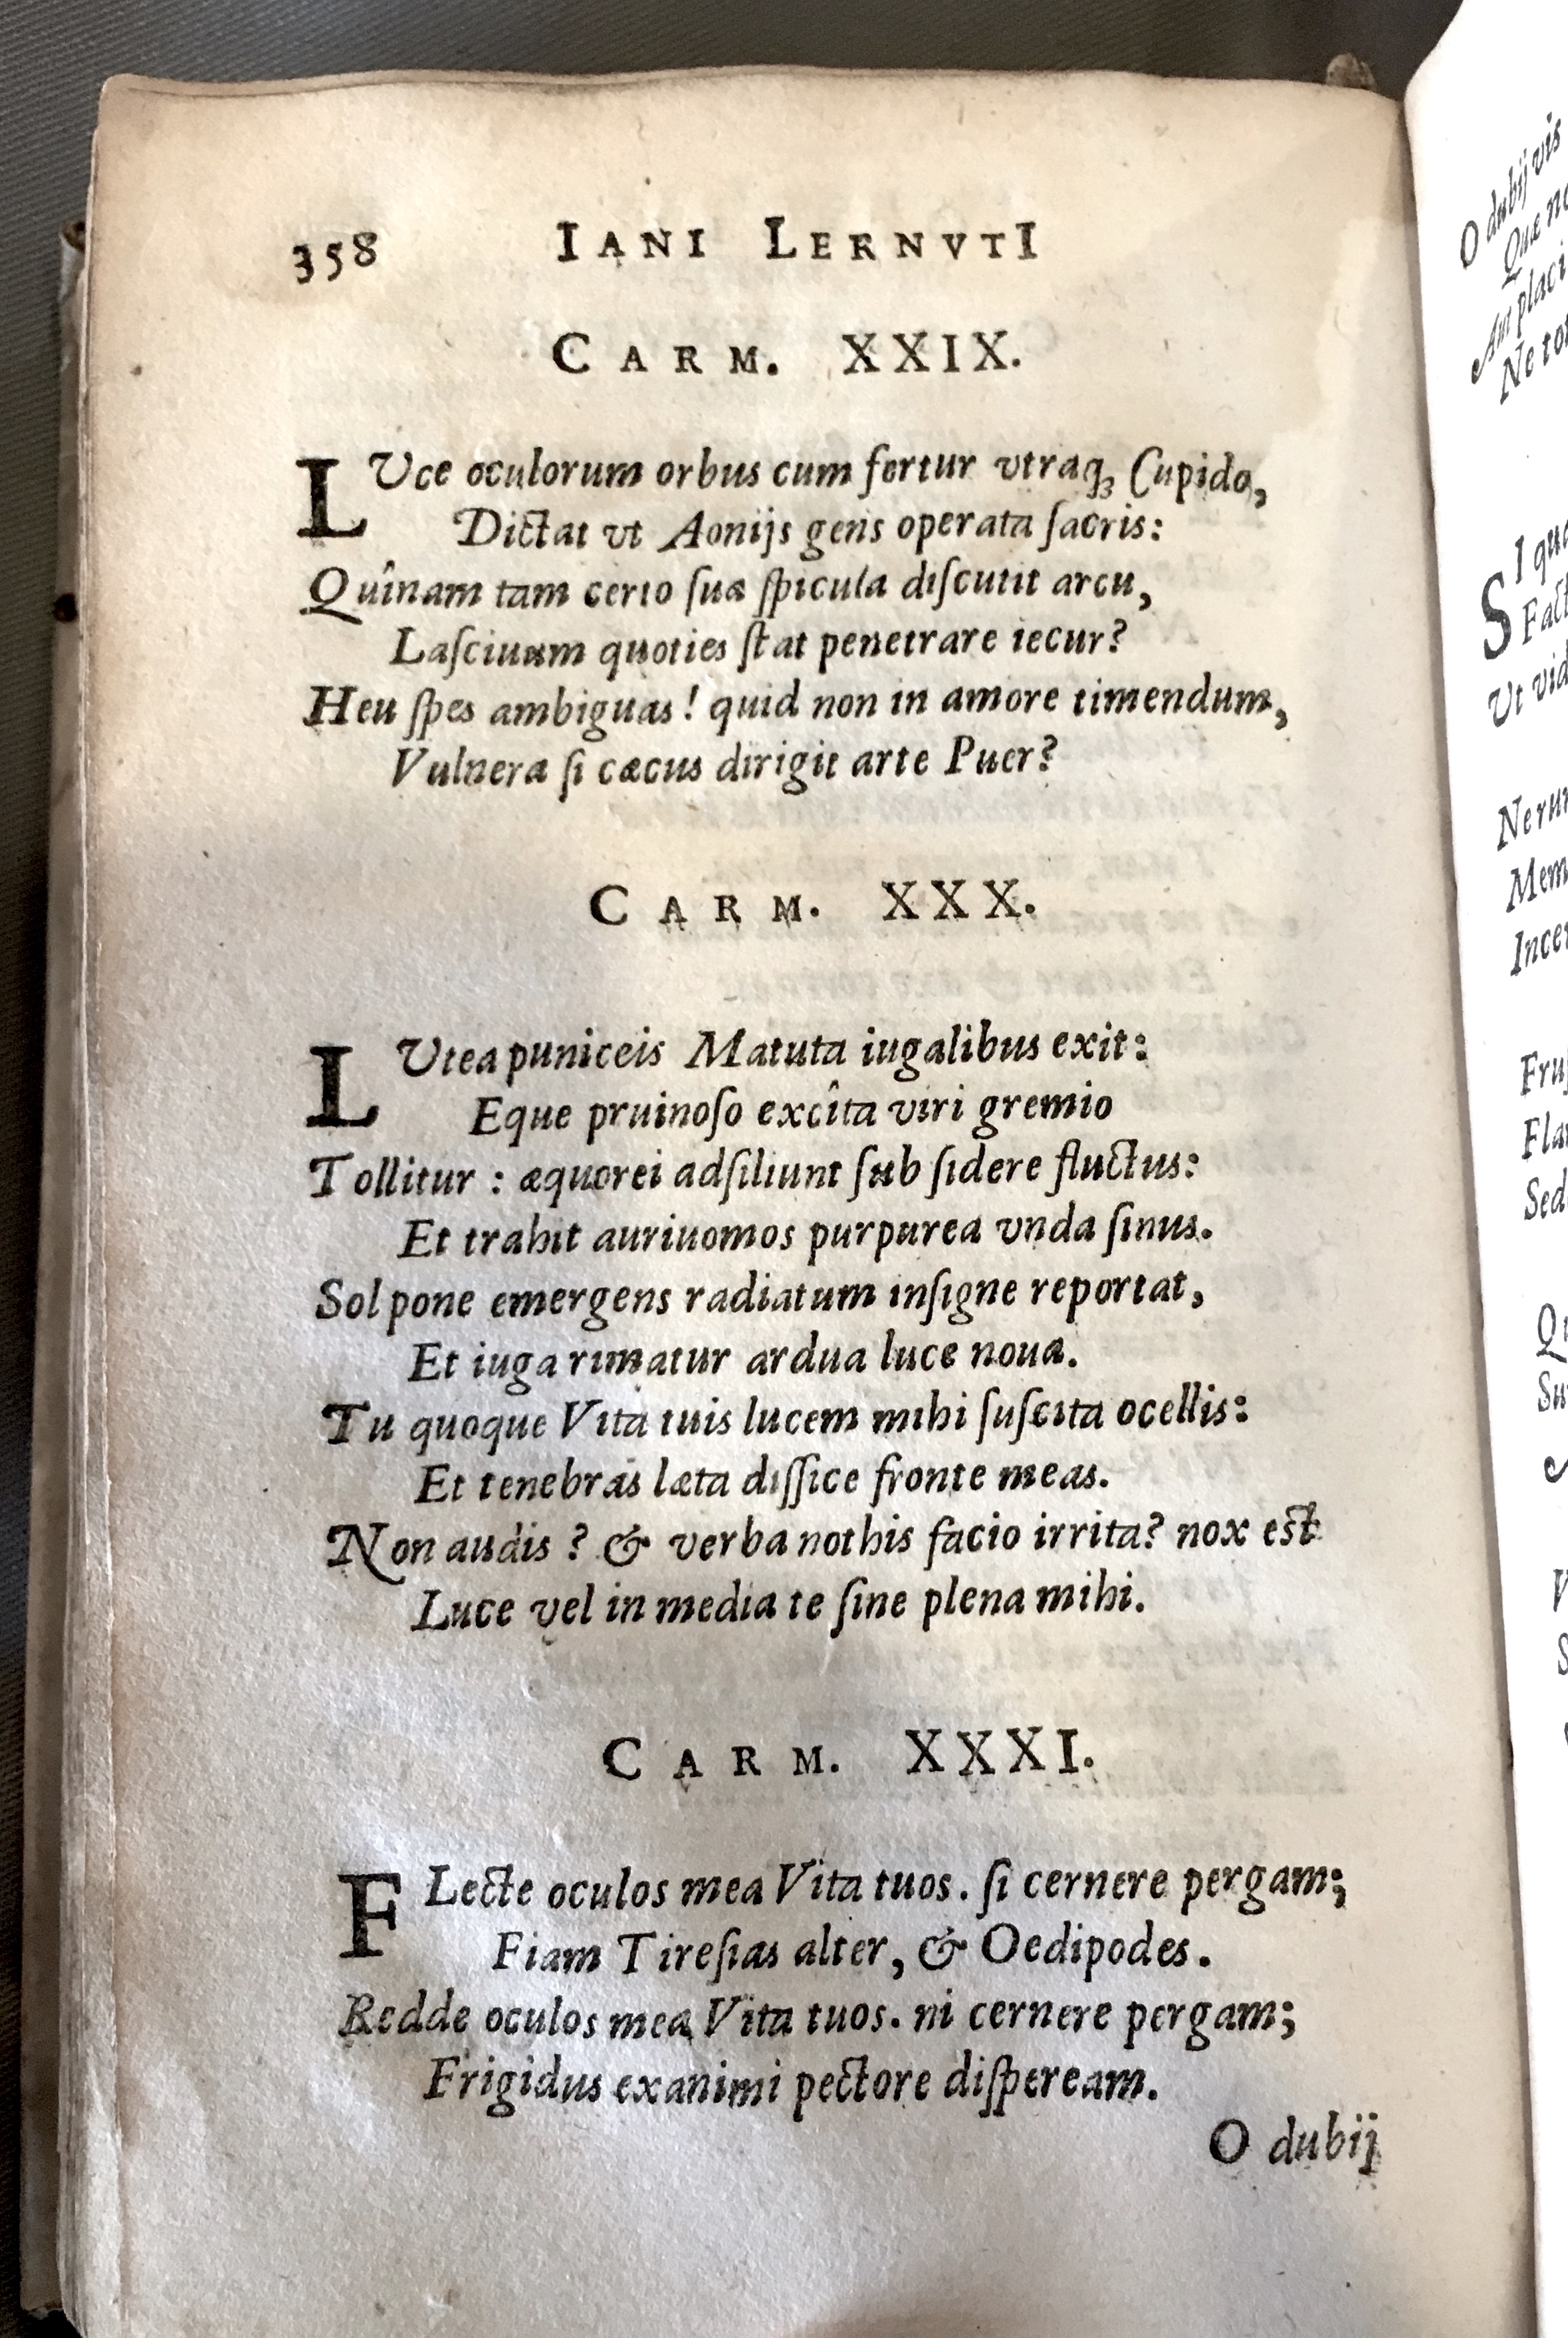 358 IANI LERNVTI
CARM. XXIX.
LUce oculorum orbus cum fertur vtraq; Cupido,
Dictat vt Aonijs gens operata ſacris:
Quînam tam certo ſua ſpicula diſcutit arcu,
Laſciuum quoties ſtat penetrare iecur?
Heu ſpes ambiguas! quid non in amore timendum,
Vulnera ſi cæcus dirigit arte Puer?
CARM. XXX.
LUtea puniceis Matuta iugalibus exit:
Eque pruinoſo excîta viri gremio
Tollitur : æquorei adſiliunt ſub ſidere fluctus:
Et trahit auriuomos purpurea vnda ſinus.
Sol pone emergens radiatum inſigne reportat,
Et iuga rimatur ardua luce noua.
Tu quoque Vita tuis lucem mihi ſuſcita ocellis:
Et tenebras læta diſſice fronte meas.
Non audis ? & verba nothis facio irrita? nox est
Luce vel in media te ſine plena mihi.
CARM. XXXI.
FLecte oculos mea Vita tuos. ſi cernere pergam;
Fiam Tireſias alter, & Oedipodes.
Redde oculos mea Vita tuos. ni cernere pergam;
Frigidus exanimi pectore diſpeream.
O dubij
O dubij vis
Ne